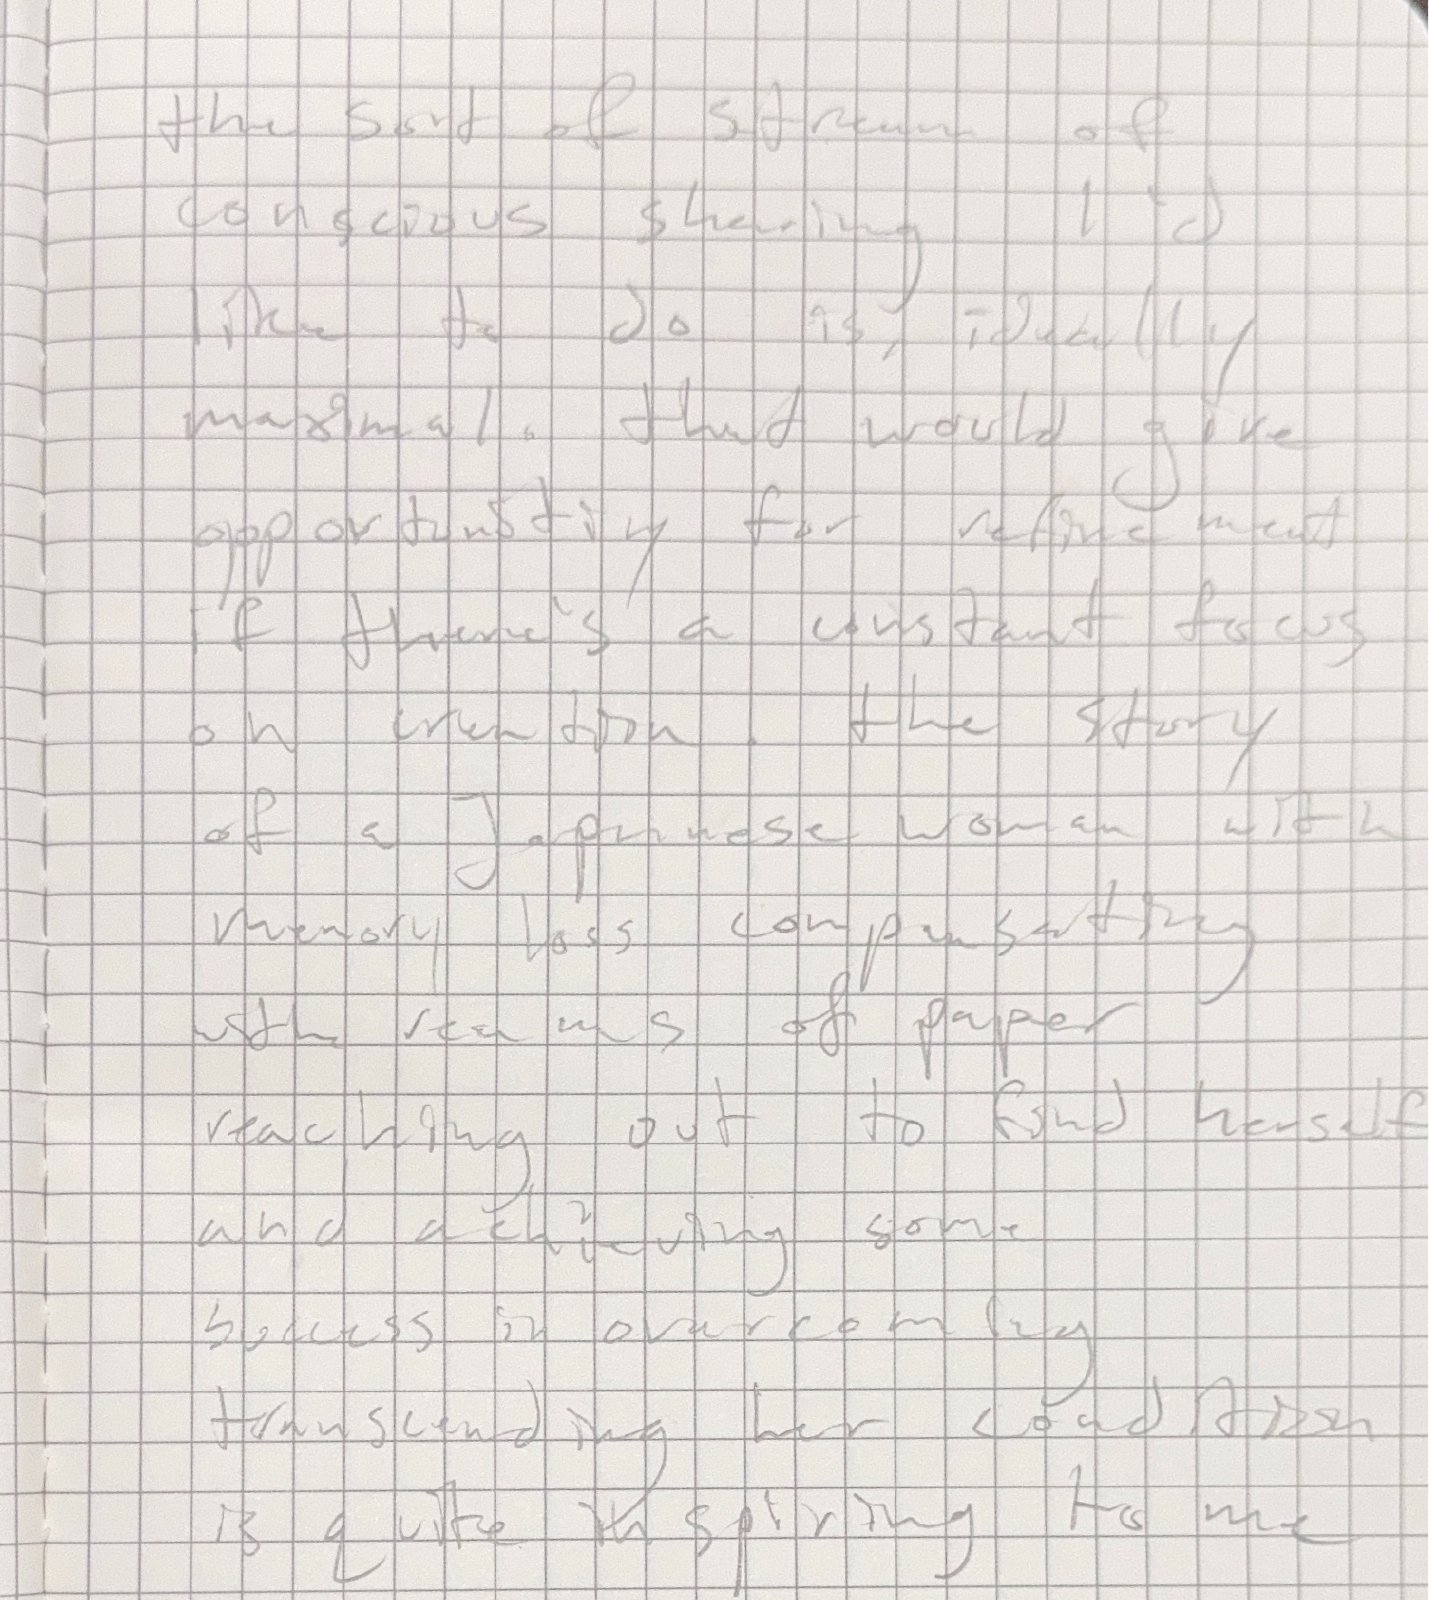 the sort of stream of
conscious sharing I'd
like to do is, ideally
maximal. that would give
opportunity for refinement
if there's a constant focus
on creation. the story
of a Japanese woman with
memory loss compensating
with reams of paper
reaching out to find herself
and achieving some
success in overcoming
transcending her condition
is quite inspiring to me